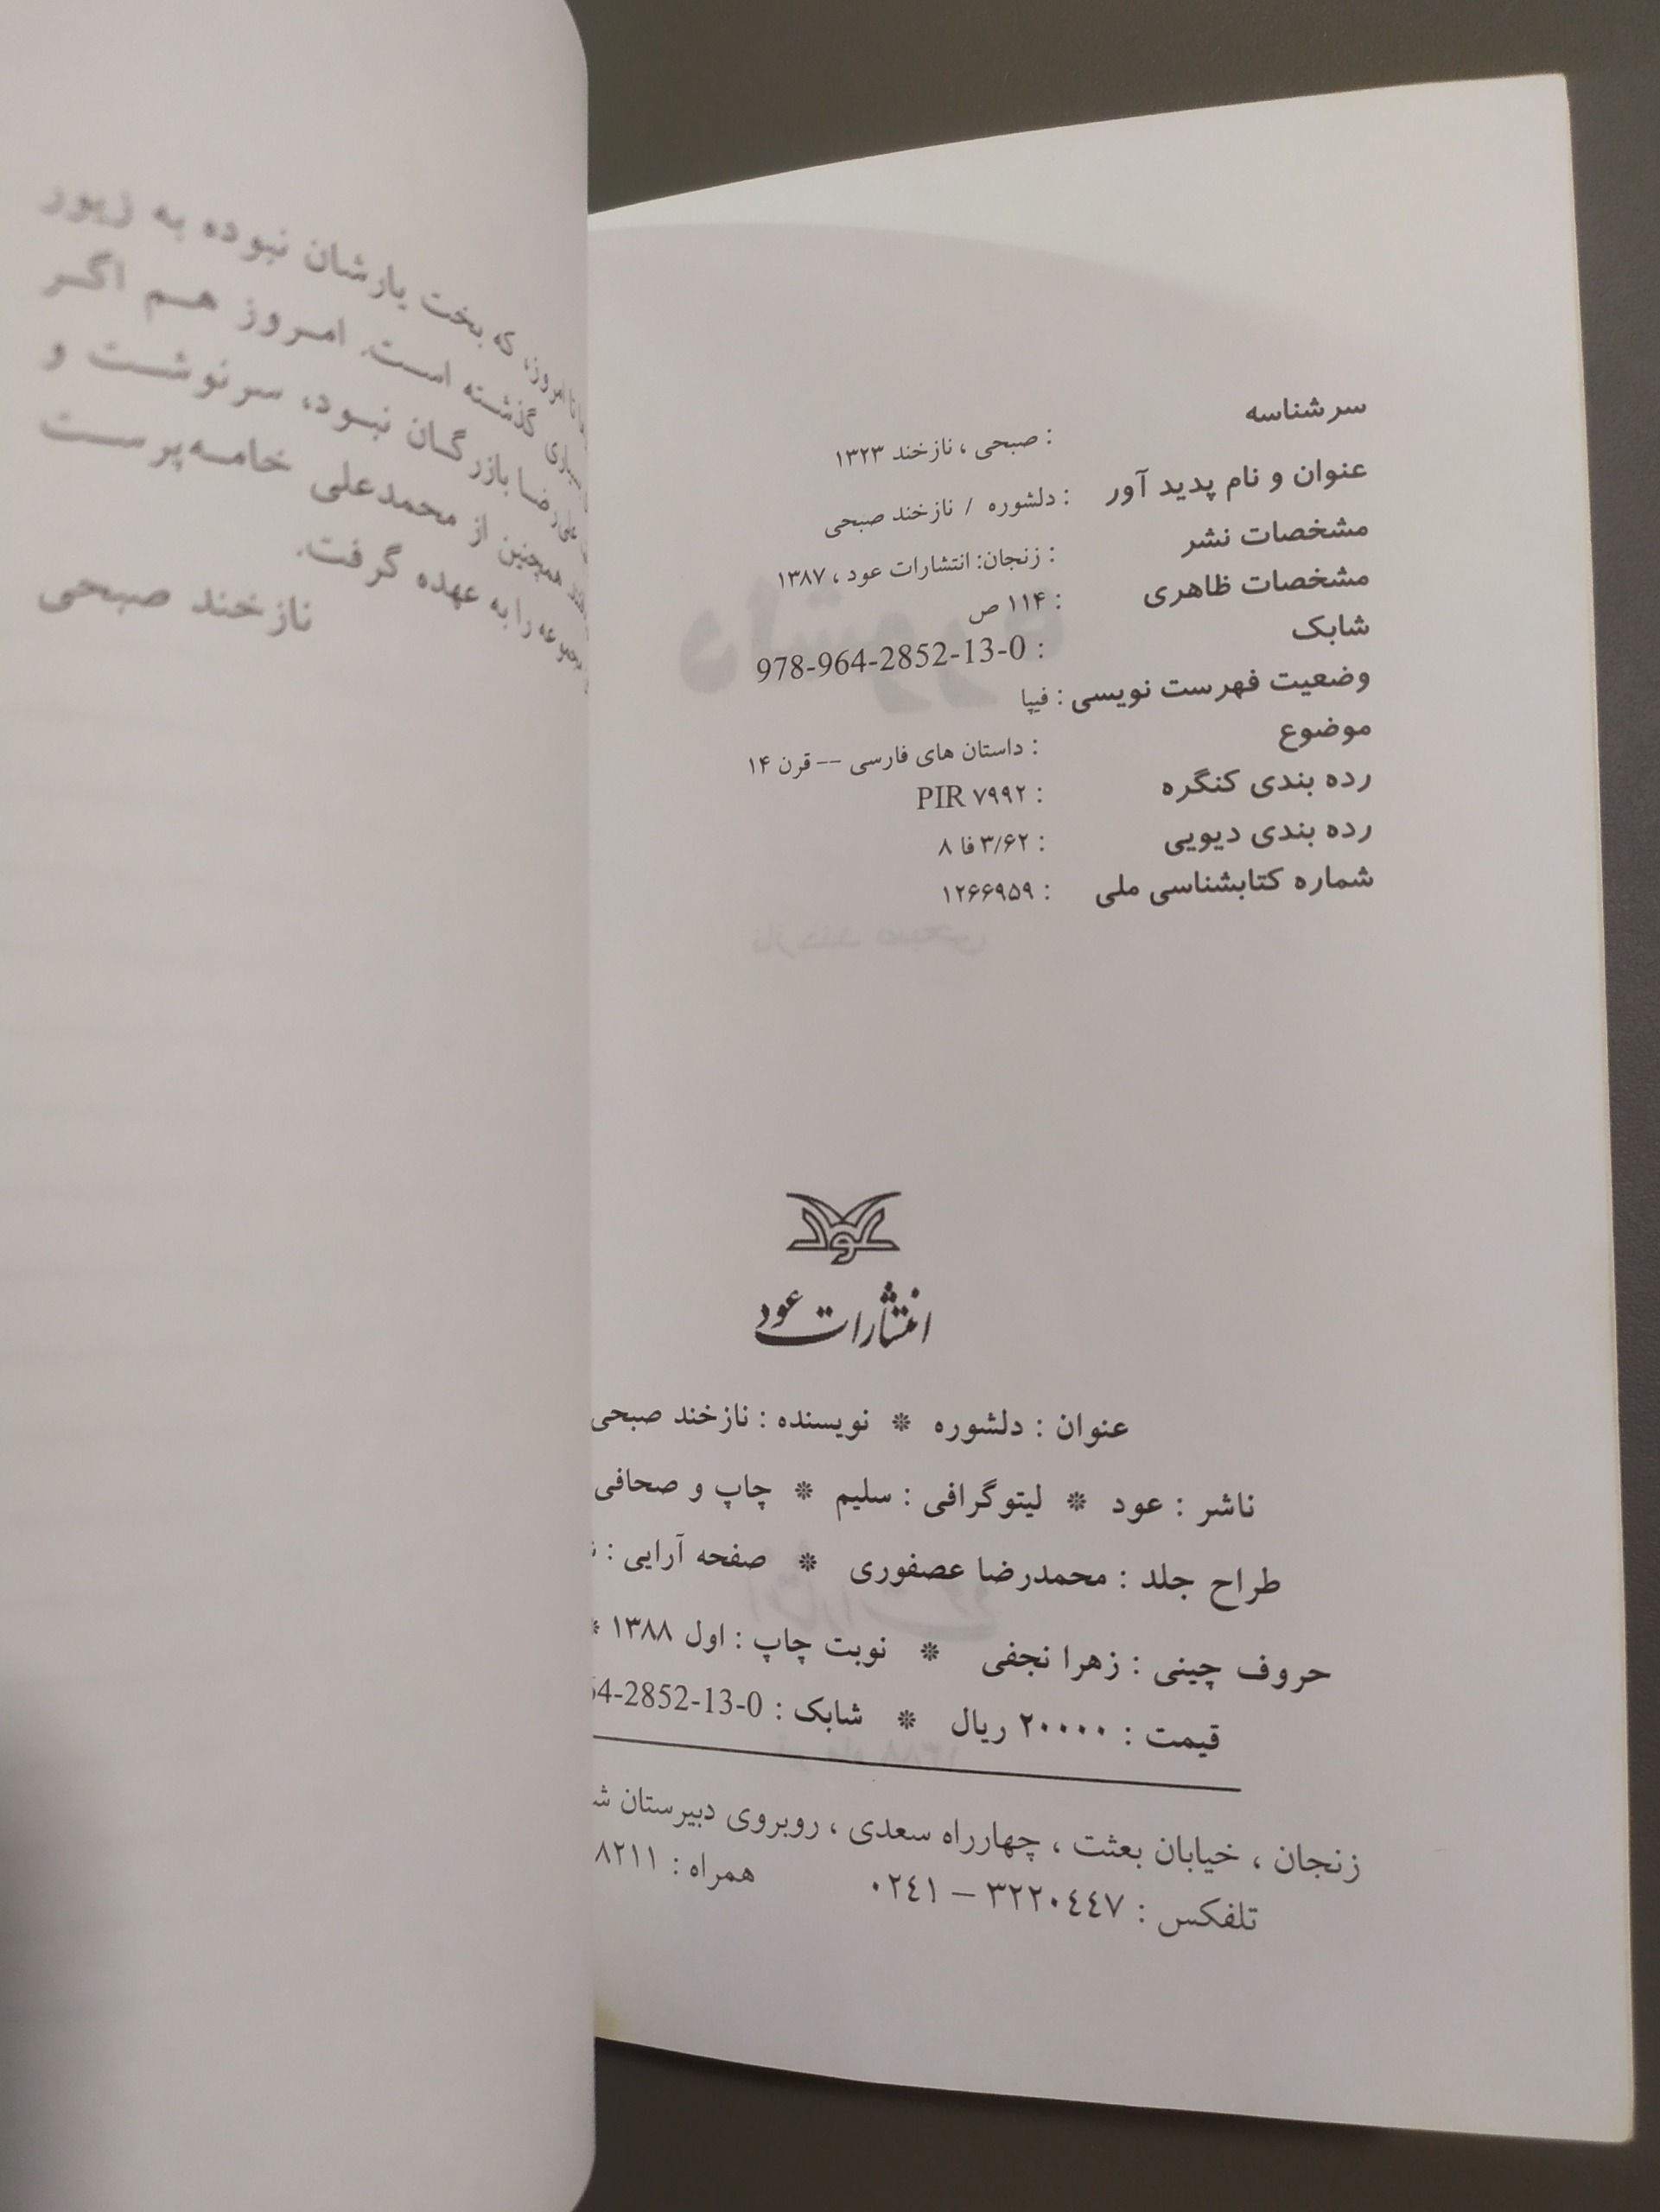 سرشناسه : صبحی ، نازخند ۱۳۲۳
عنوان و نام پدید آور : دلشوره / نازخند صبحی
مشخصات نشر : زنجان: انتشارات عود ، ۱۳۸۷
مشخصات ظاهری : ۱۱۴ ص
شابک : 978-964-2852-13-0
وضعیت فهرست نویسی : فیپا
موضوع : داستان های فارسی -- قرن ۱۴
رده بندی کنگره : PIR ۷۹۹۲
رده بندی دیویی : ۳/۶۲ فا ۸
شماره کتابشناسی ملی : ۱۲۶۶۹۵۹
عود
انتشارات عود
عنوان : دلشوره ❊ نویسنده : نازخند صبحی
ناشر : عود ❊ لیتوگرافی : سلیم ❊ چاپ و صحافی
طراح جلد : محمدرضا عصفوری ❊ صفحه آرایی :
حروف چینی : زهرا نجفی ❊ نوبت چاپ : اول ۱۳۸۸ ❊
قیمت : ۲۰۰۰۰ ریال ❊ شابک : 64-2852-13-0
زنجان ، خیابان بعثت ، چهارراه سعدی ، روبروی دبیرستان
تلفکس : ۳۲۲۰٤٤۷ – ۰۲٤۱ همراه : ۸۲۱۱
تا امروز، که بخت یارشان نبوده به زیور
گذشته است. امروز هم اگر
علی‌رضا بازرگان نبود، سرنوشت و
همچنین از محمدعلی خامه‌پرست
مجموعه را به عهده گرفت.
نازخند صبحی